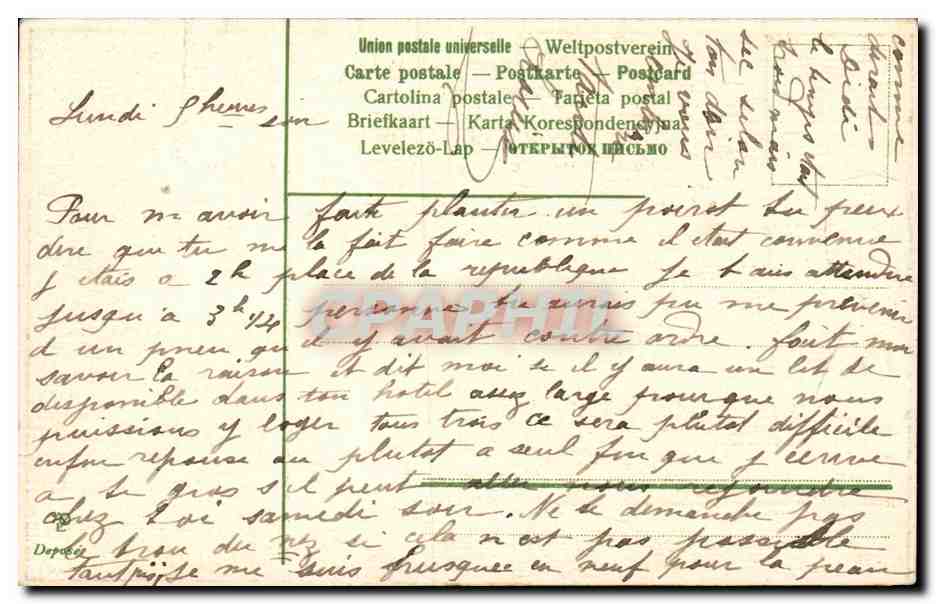 Union postale universelle — Weltpostverein
Carte postale — Postkarte — Postcard
Cartolina postale — Tarjeta postal
Briefkaart — Karta Korespondencyjna
Levelező-Lap — ОТКРЫТОЕ ПИСЬМО
Lundi 5 heures soir
Pour m avoir fait planter un poirot tu peux
dire que tu me la fait faire comme il etait convenue
j etais a 2h place de la republique je t ais attendue
jusqu'a 3h 1/4 personne tu aurais pu me prevenir
d un pneu qu il y avait contre ordre. fait moi
savoir la raison et dit moi se il y aura un lit de
disponible dans ton hotel assez large pourque nous
puissions y loger tous trois ce sera plutot difficile
enfin reponse au plutot a seul fin que j ecrive
a se gros s il peut aller nous rejoindre
chez toi samedi soir. Ne se demanche pas
le trou du nez si cela n est pas possible
tant pis, je me suis frusquée en neuf pour la peau
comme
dirait
Didi
le temps etait
mais
sec selon
ton désir
je vous
CPARHI
Deposée